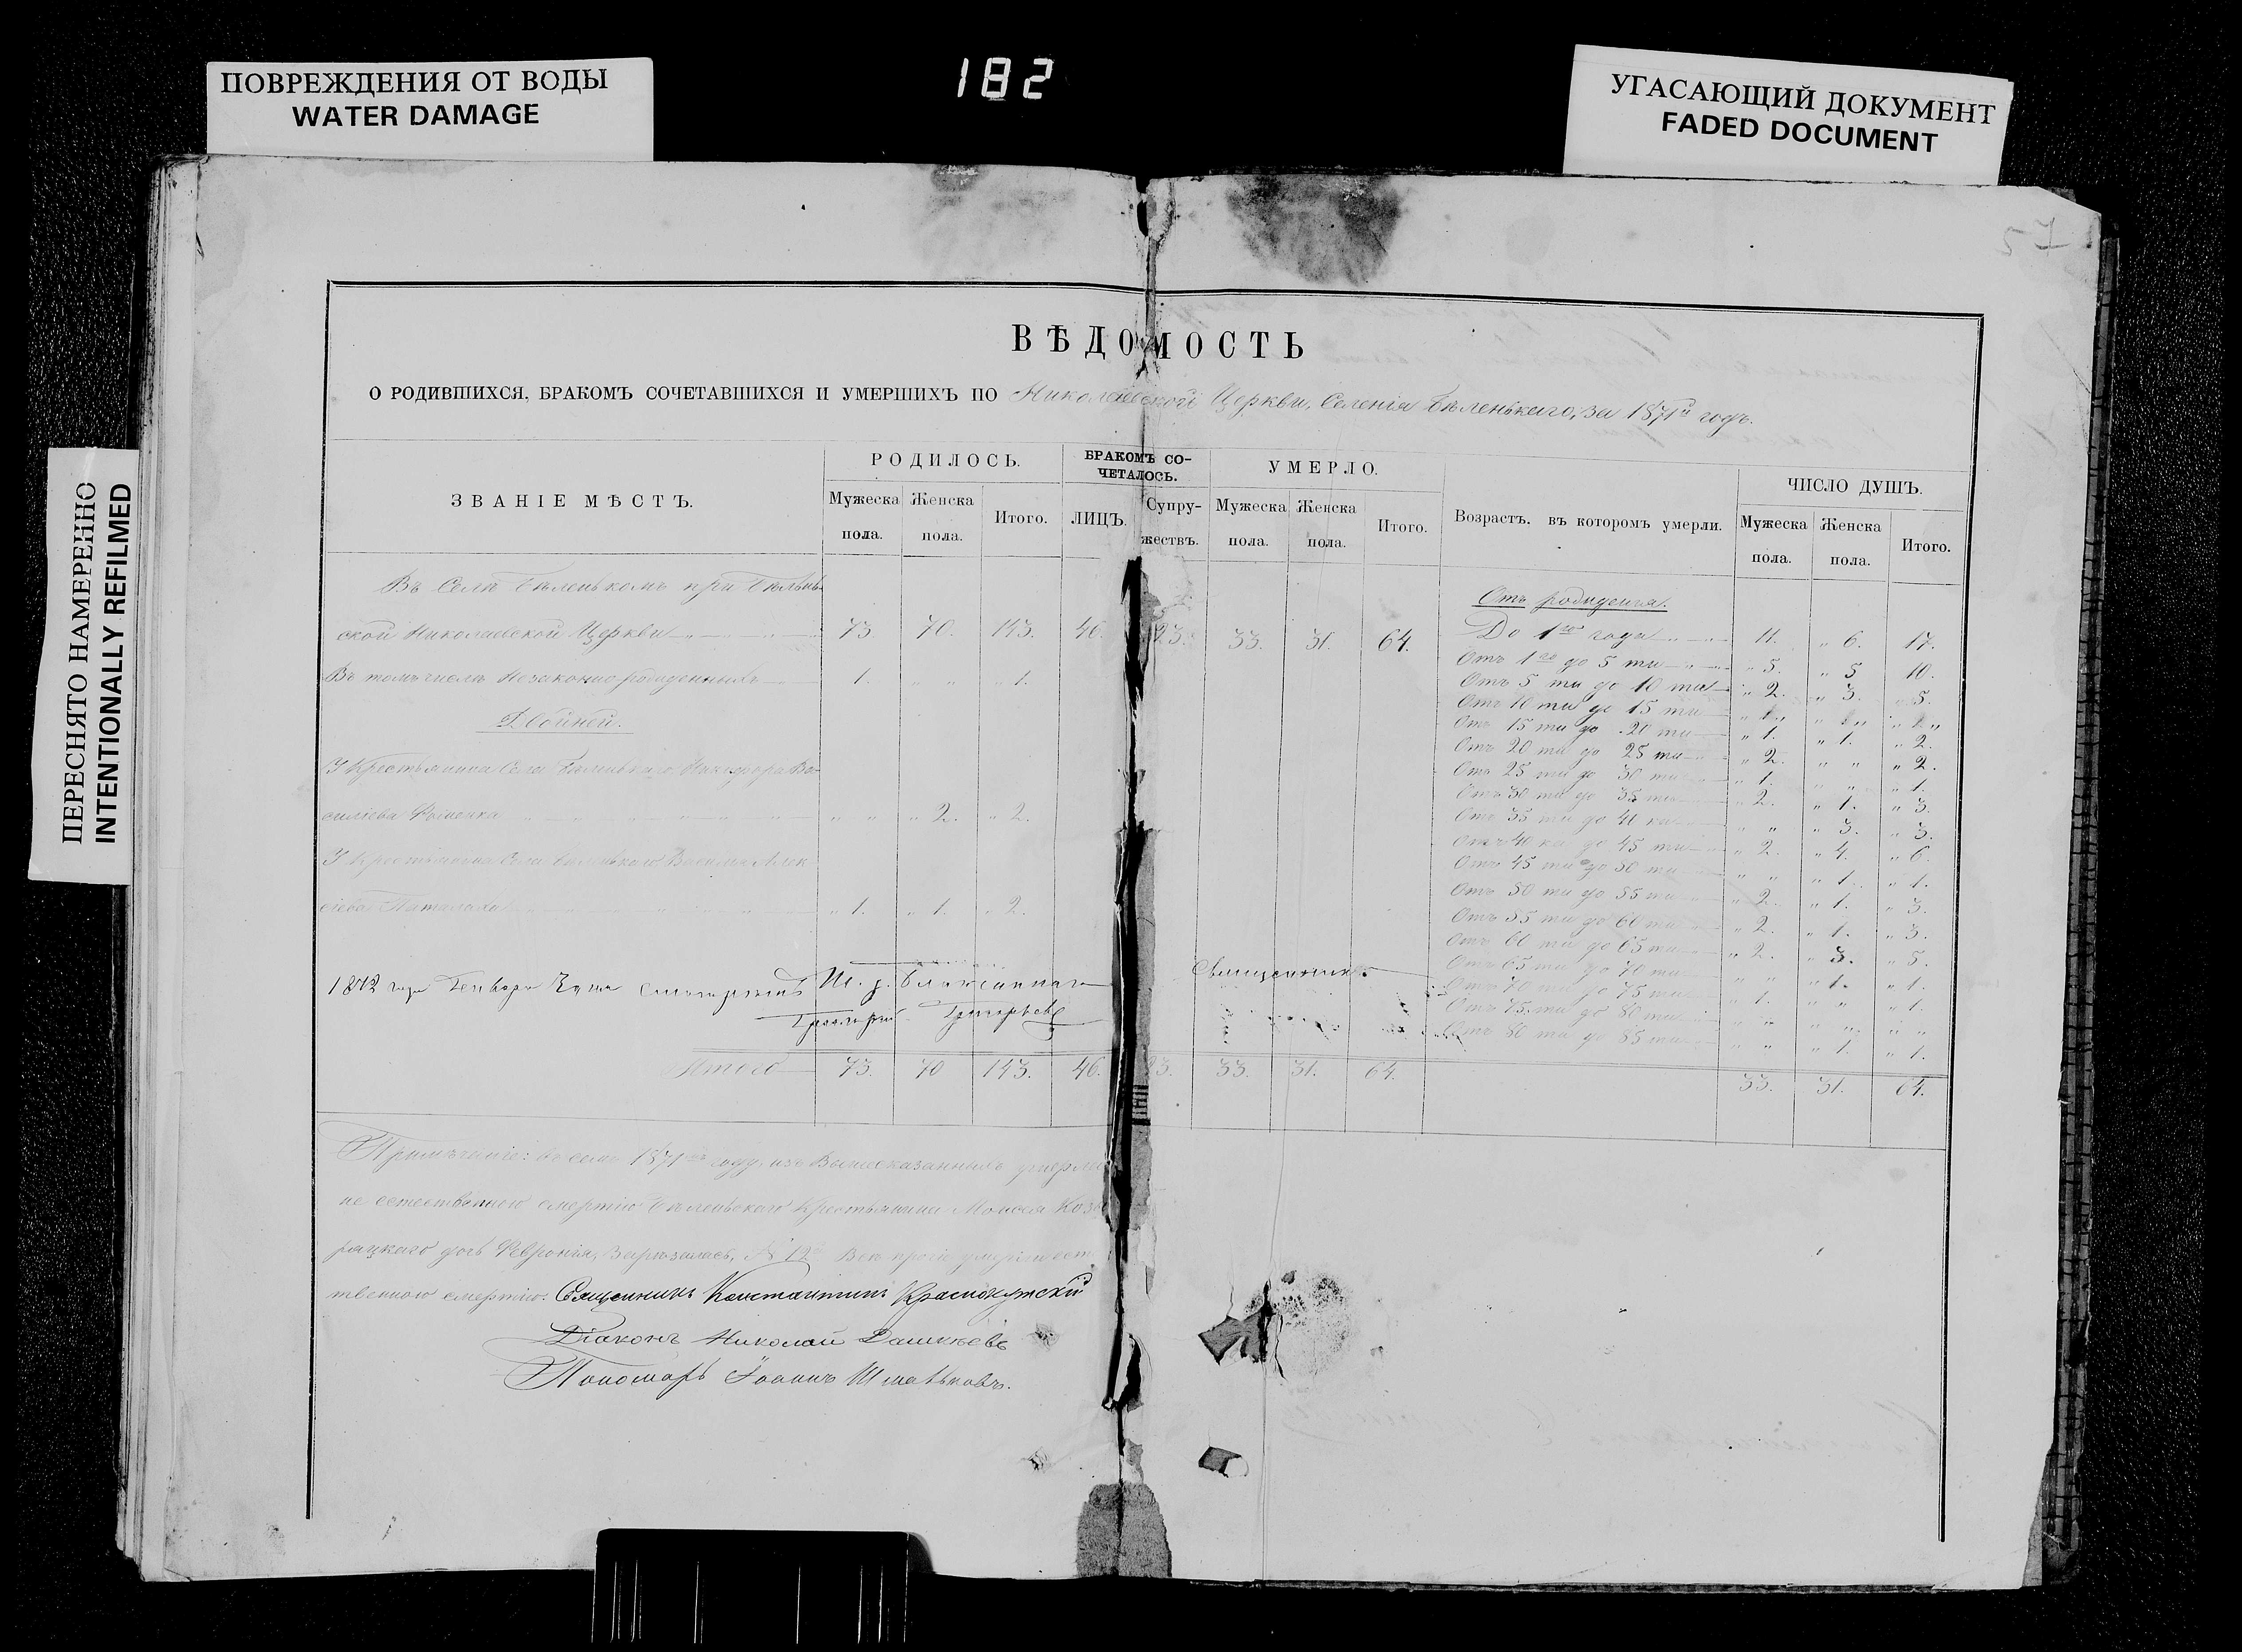 ПОВРЕЖДЕНИЯ ОТ ВОДЫ
WATER DAMAGE
182
УГАСАЮЩИЙ ДОКУМЕНТ
FADED DOCUMENT
ПЕРЕСНЯТО НАМЕРЕННО
INTENTIONALLY REFILMED
57
ВѢДОМОСТЬ
О РОДИВШИХСЯ, БРАКОМЪ СОЧЕТАВШИХСЯ И УМЕРШИХЪ ПО Николаевской Церкви, Селенія Бѣленькаго, за 1871й годъ.
ЗВАНІЕ МѢСТЪ.
РОДИЛОСЬ.
Мужеска пола.
Женска пола.
Итого.
БРАКОМЪ СО-
ЧЕТАЛОСЬ.
ЛИЦЪ.
Супру-
жествъ.
УМЕРЛО.
Мужеска пола.
Женска пола.
Итого.
Возрастъ, въ которомъ умерли.
ЧИСЛО ДУШЪ.
Мужеска пола.
Женска пола.
Итого.
Въ Селѣ Бѣленькомъ при Бѣлень-
ской Николаевской Церкви 73 70. 143. 46. 23. 33. 31. 64.
Въ томъ числѣ Незаконно-рожденныхъ 1. " " " 1.
Двойней.
У Крестьянина Села Бѣленькаго Никифора Ва-
силіева Фоменка " " " 2. " 2.
У Крестьянина Села Бѣленькаго Василія Алек
сіева " 1. " 1. " 2.
Отъ рожденія.
До 1го года 11. " 6. 17.
Отъ 1го до 5 ти " 5. " 5 10.
Отъ 5 ти до 10 ти " 2. " 3. " 5.
Отъ 10 ти до 15 ти
Отъ 15 ти до 20 ти " 1. " 1. " 2.
Отъ 20 ти до 25 ти " 2. " " " 2.
Отъ 25 ти до 30 ти " 1. " " " 1.
Отъ 30 ти до 35 ти " 2. " 1. " 3.
Отъ 35 ти до 40 ка " " " 3. " 3.
Отъ 40 ка до 45 ти " 2. " 4. " 6.
Отъ 45 ти до 50 ти " " " 1. " 1.
Отъ 50 ти до 55 ти " 2. " 1. " 3.
Отъ 55 ти до 60 ти " 2. " 1. " 3.
Отъ 60 ти до 65 ти " 2. " 3. " 5.
Отъ 65 ти до 70 ти " " " 1. " 1.
Отъ 70 ти до 75 ти " 1. " " " 1.
Отъ 75 ти до 80 ти " " " " " "
Отъ 80 ти до 85 ти " " " 1. " 1.
1872 года Генваря дня смотрѣлъ И. д. Благочиннаго Священникъ
Григорій Григорьевъ
Итого 73. 70 143. 46. 23. 33. 31. 64. 33. 31. 64.
Примѣчаніе: въ семъ 1871мъ году, изъ Вышесказанныхъ умерла
не естественною смертію Бѣленьскаго Крестьянина Моисея
дочь Февронія, Зарѣзалась, № 12й Всѣ проч. умерли ест
твенною смертію: Священникъ Константинъ Краснокутскій
Діаконъ Николай Дашкѣевъ
Пономарь Іоаннъ Шматьковъ.